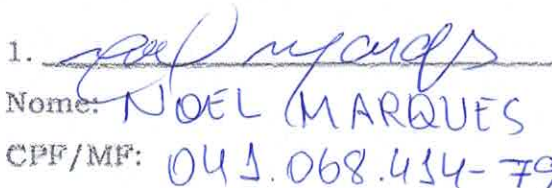 1.
Nome: NOEL MARQUES
CPF/MF: 041.068.414-79